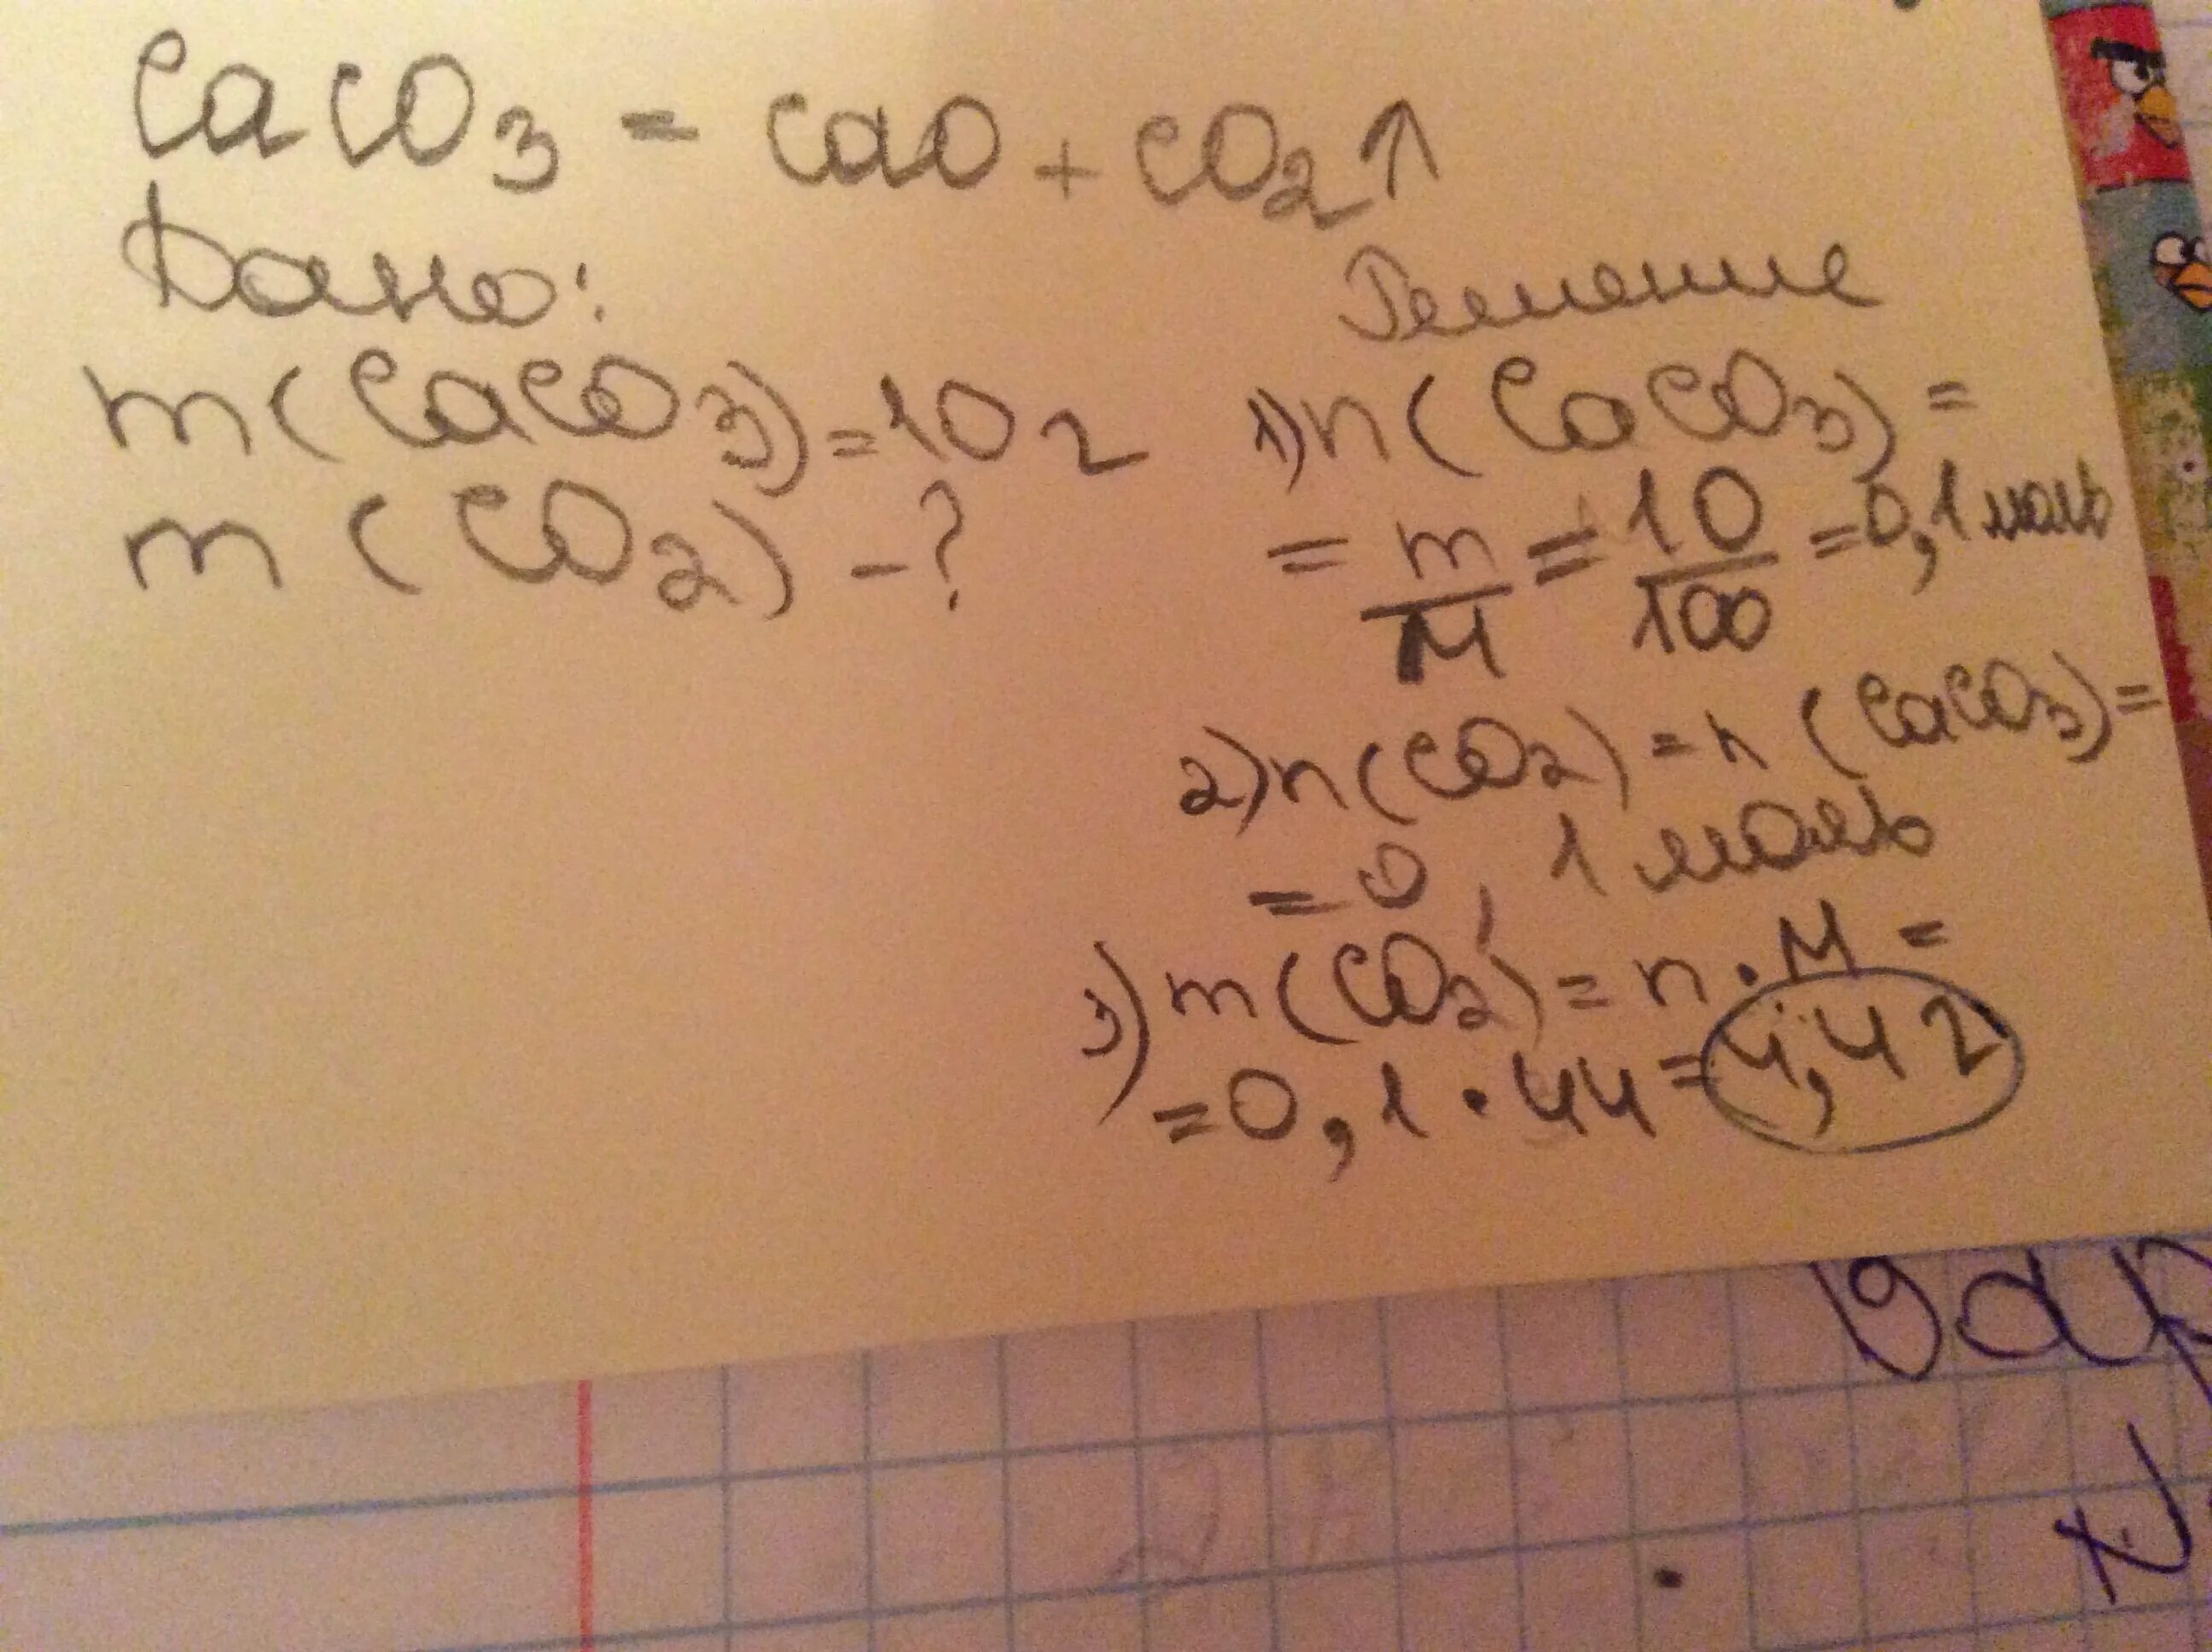 CaCO3 = CaO + CO2↑
Дано:
m(CaCO3)=10г
m(CO2)-?
Решение
1)n(CaCO3)=
=m/M=10/100=0,1моль
2)n(CO2)=n(CaCO3)=
=0,1моль
3)m(CO2)=n·M=
=0,1·44=4,4г